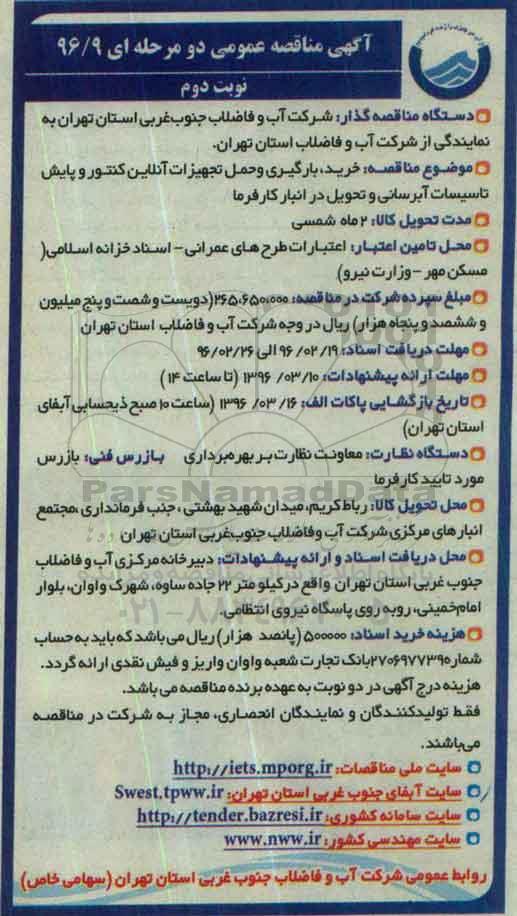 آگهی مناقصه عمومی دو مرحله ای ۹۶/۹
نوبت دوم
دستگاه مناقصه گذار: شرکت آب و فاضلاب جنوب‌غربی استان تهران به
نمایندگی از شرکت آب و فاضلاب استان تهران.
موضوع مناقصه: خرید، بارگیری وحمل تجهیزات آنلاین کنتور و پایش
تاسیسات آبرسانی و تحویل در انبار کارفرما
مدت تحویل کالا: ۲ ماه شمسی
محل تامین اعتبار: اعتبارات طرح های عمرانی - اسناد خزانه اسلامی(
مسکن مهر - وزارت نیرو)
مبلغ سپرده شرکت در مناقصه: ۲۶۵،۶۵۰،۰۰۰(دویست و شصت و پنج میلیون
و ششصد و پنجاه هزار) ریال در وجه شرکت آب و فاضلاب استان تهران
مهلت دریافت اسناد: ۹۶/۰۲/۱۹ الی ۹۶/۰۲/۲۶
مهلت ارائه پیشنهادات: ۱۳۹۶/۰۳/۱۰ (تا ساعت ۱۴)
تاریخ بازگشایی پاکات الف: ۱۳۹۶/۰۳/۱۶ (ساعت ۱۰ صبح ذیحسابی آبفای
استان تهران)
دستگاه نظارت: معاونت نظارت بر بهره‌برداری بازرس فنی: بازرس
مورد تایید کارفرما
محل تحویل کالا: رباط‌کریم، میدان شهید بهشتی، جنب فرمانداری، مجتمع
انبارهای مرکزی شرکت آب وفاضلاب جنوب‌غربی استان تهران
محل دریافت اسناد و ارائه پیشنهادات: دبیرخانه مرکزی آب و فاضلاب
جنوب غربی استان تهران واقع در کیلو متر ۲۲ جاده ساوه، شهرک واوان، بلوار
امام‌خمینی، روبه روی پاسگاه نیروی انتظامی.
هزینه خرید اسناد: ۵۰۰۰۰۰ (پانصد هزار) ریال می باشد که باید به حساب
شماره ۲۷۰۶۹۷۷۳۹۰ بانک تجارت شعبه واوان واریز و فیش نقدی ارائه گردد.
هزینه درج آگهی در دو نوبت به عهده برنده مناقصه می باشد.
فقط تولیدکنندگان و نمایندگان انحصاری، مجاز به شرکت در مناقصه
می‌باشند.
سایت ملی مناقصات: http://iets.mporg.ir
سایت آبفای جنوب غربی استان تهران: Swest.tpww.ir
سایت سامانه کشوری: http://tender.bazresi.ir
سایت مهندسی کشور: www.nww.ir
روابط عمومی شرکت آب و فاضلاب جنوب غربی استان تهران (سهامی خاص)
ParsNamadData